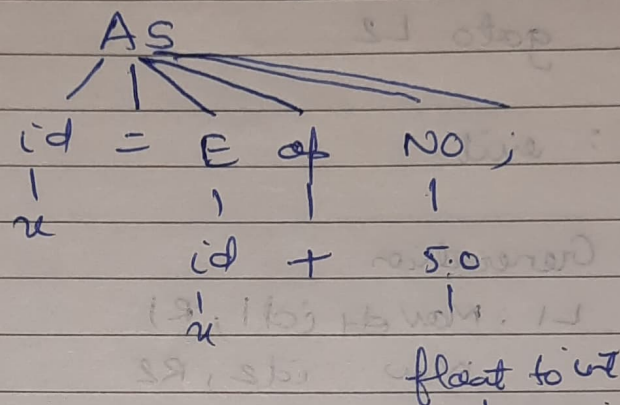 AS
id = E op NO ;
id + 5.0
x x
float to int